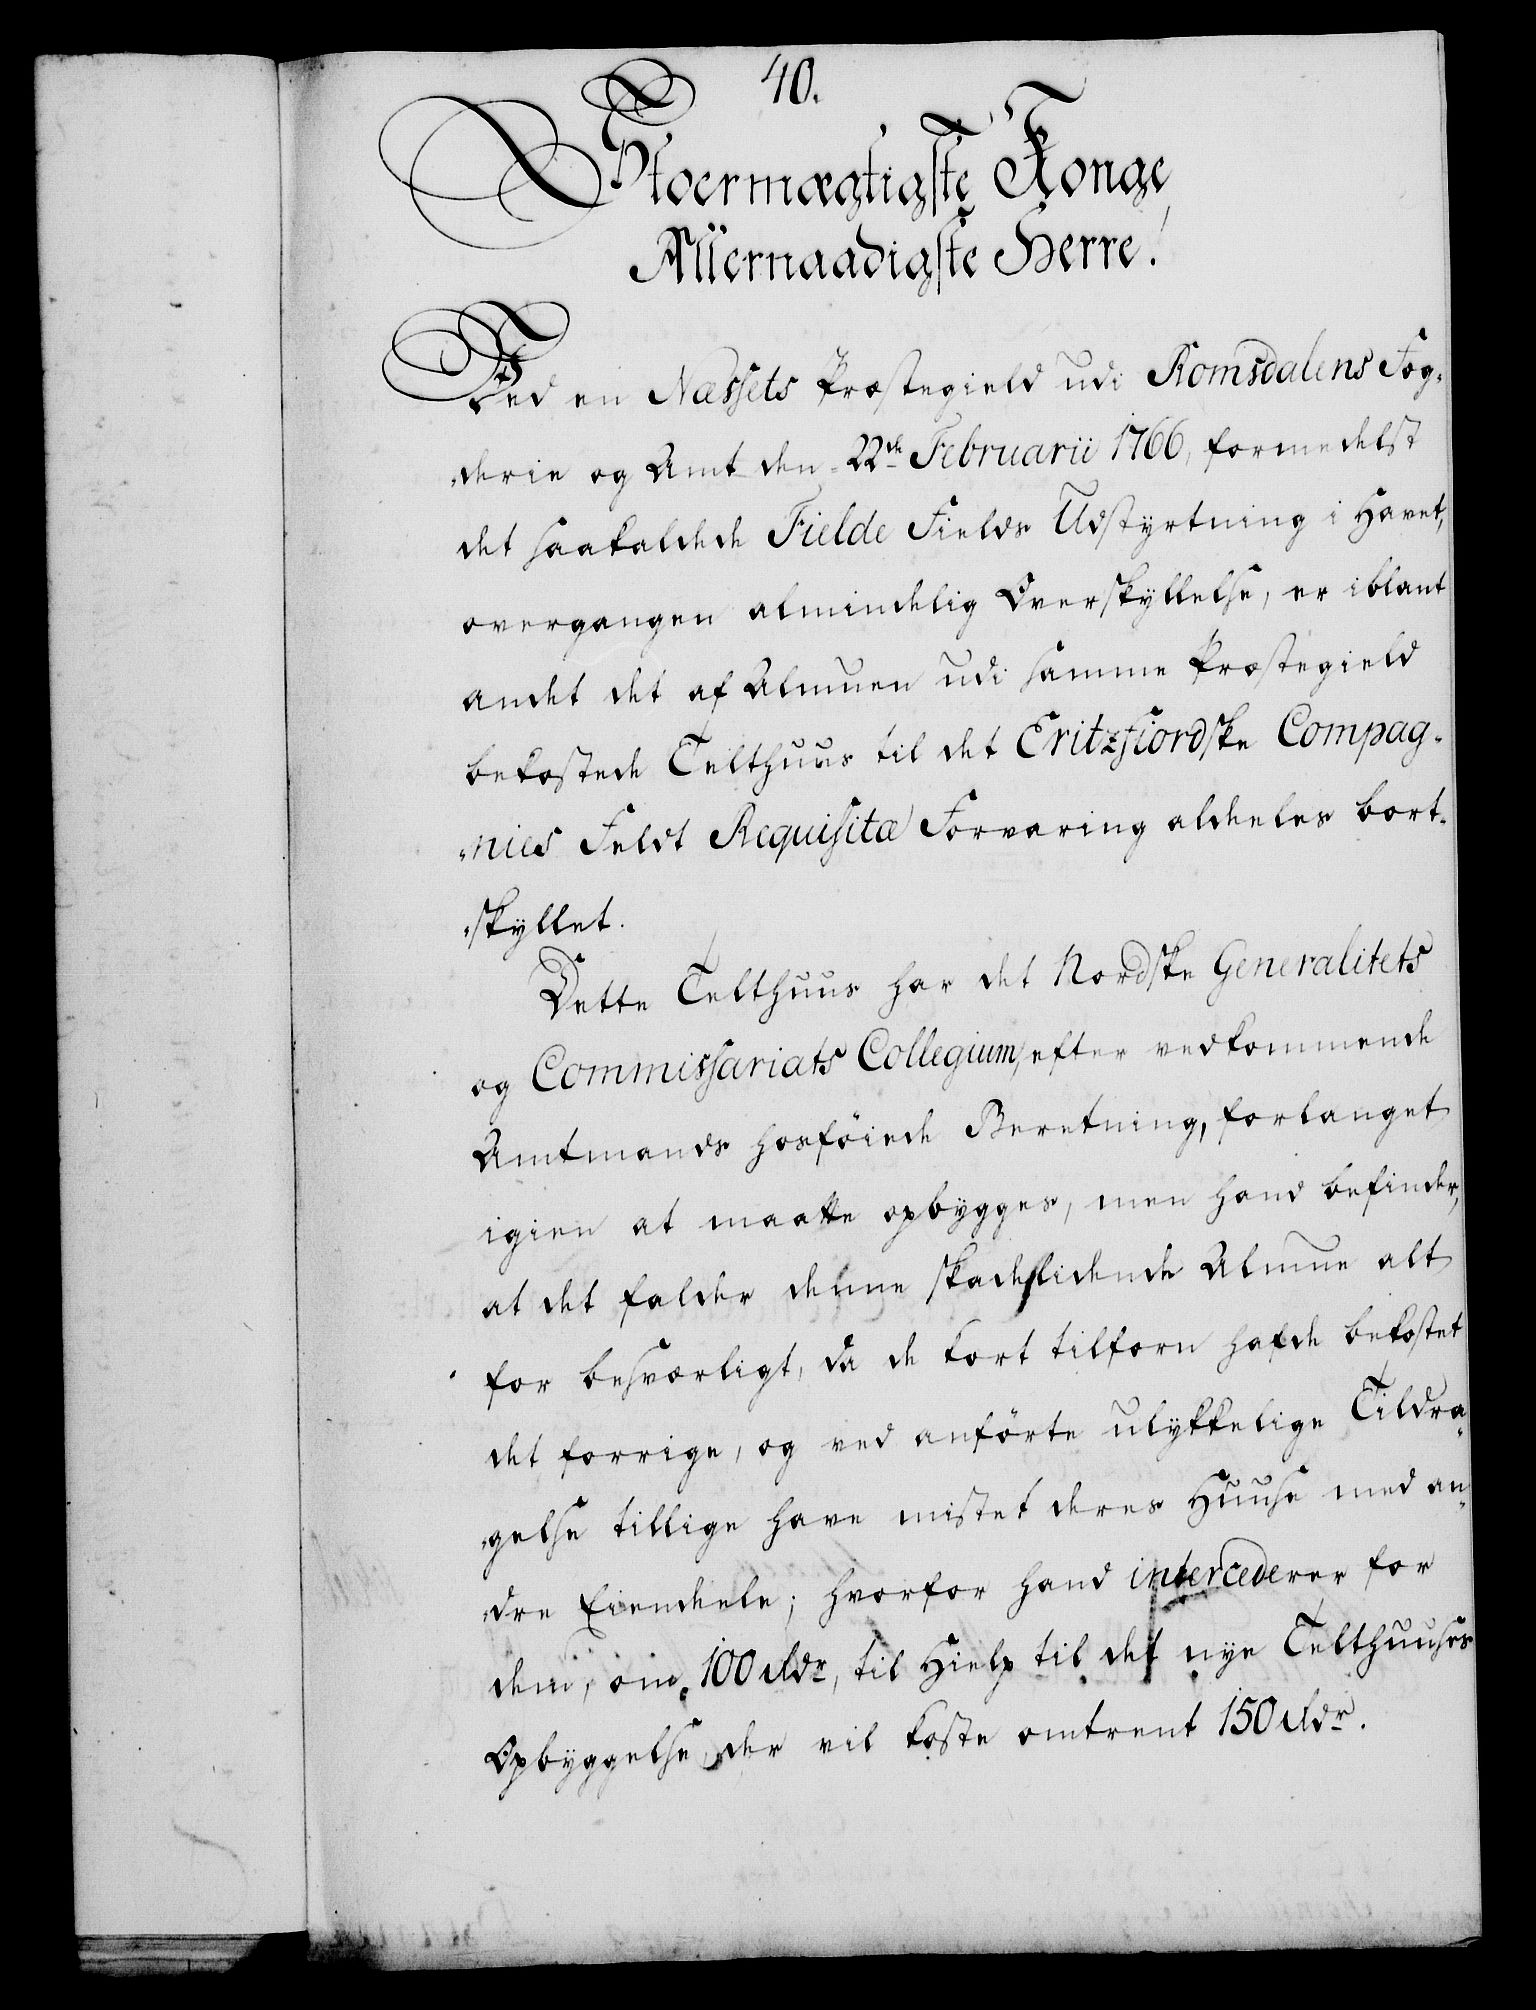 40.
Stoermægtigste Konge
Allernaadigste Herre!
Ved en Næssets Præstegield udi Romsdalens Fog-
derie og Amt den 22de Februarii 1766, formedelst
det saakaldede Fielde Fields Udstyrtning i Havet,
overgangen almindelig Overskyllelse, er iblant
andet det af Almuen udi samme Præstegield
bekostede Telthuus til det Eritzfiordske Compag-
nies Feldt Requisitæ Forvaring aldeles bort-
skyllet.
Dette Telthuus har det Nordske Generalitets
og Commissariats Collegium, efter vedkommende
Amtmands hosföiede Beretning, forlanget
igien at maatte opbygges, men hand befinder,
at det falder denne skadelidende Almue alt
for besværligt, da de kort tilforn hafde bekostet
det forrige, og ved anförte ulykkelige Tildra-
gelse tillige have mistet deres Huuse med an-
dre Eiendeele; hvorfor hand intercederer for
dem, om 100 Rdr, til Hielp til det nye Telthuuses
Opbyggelse, der vil koste omtrent 150 Rdr.